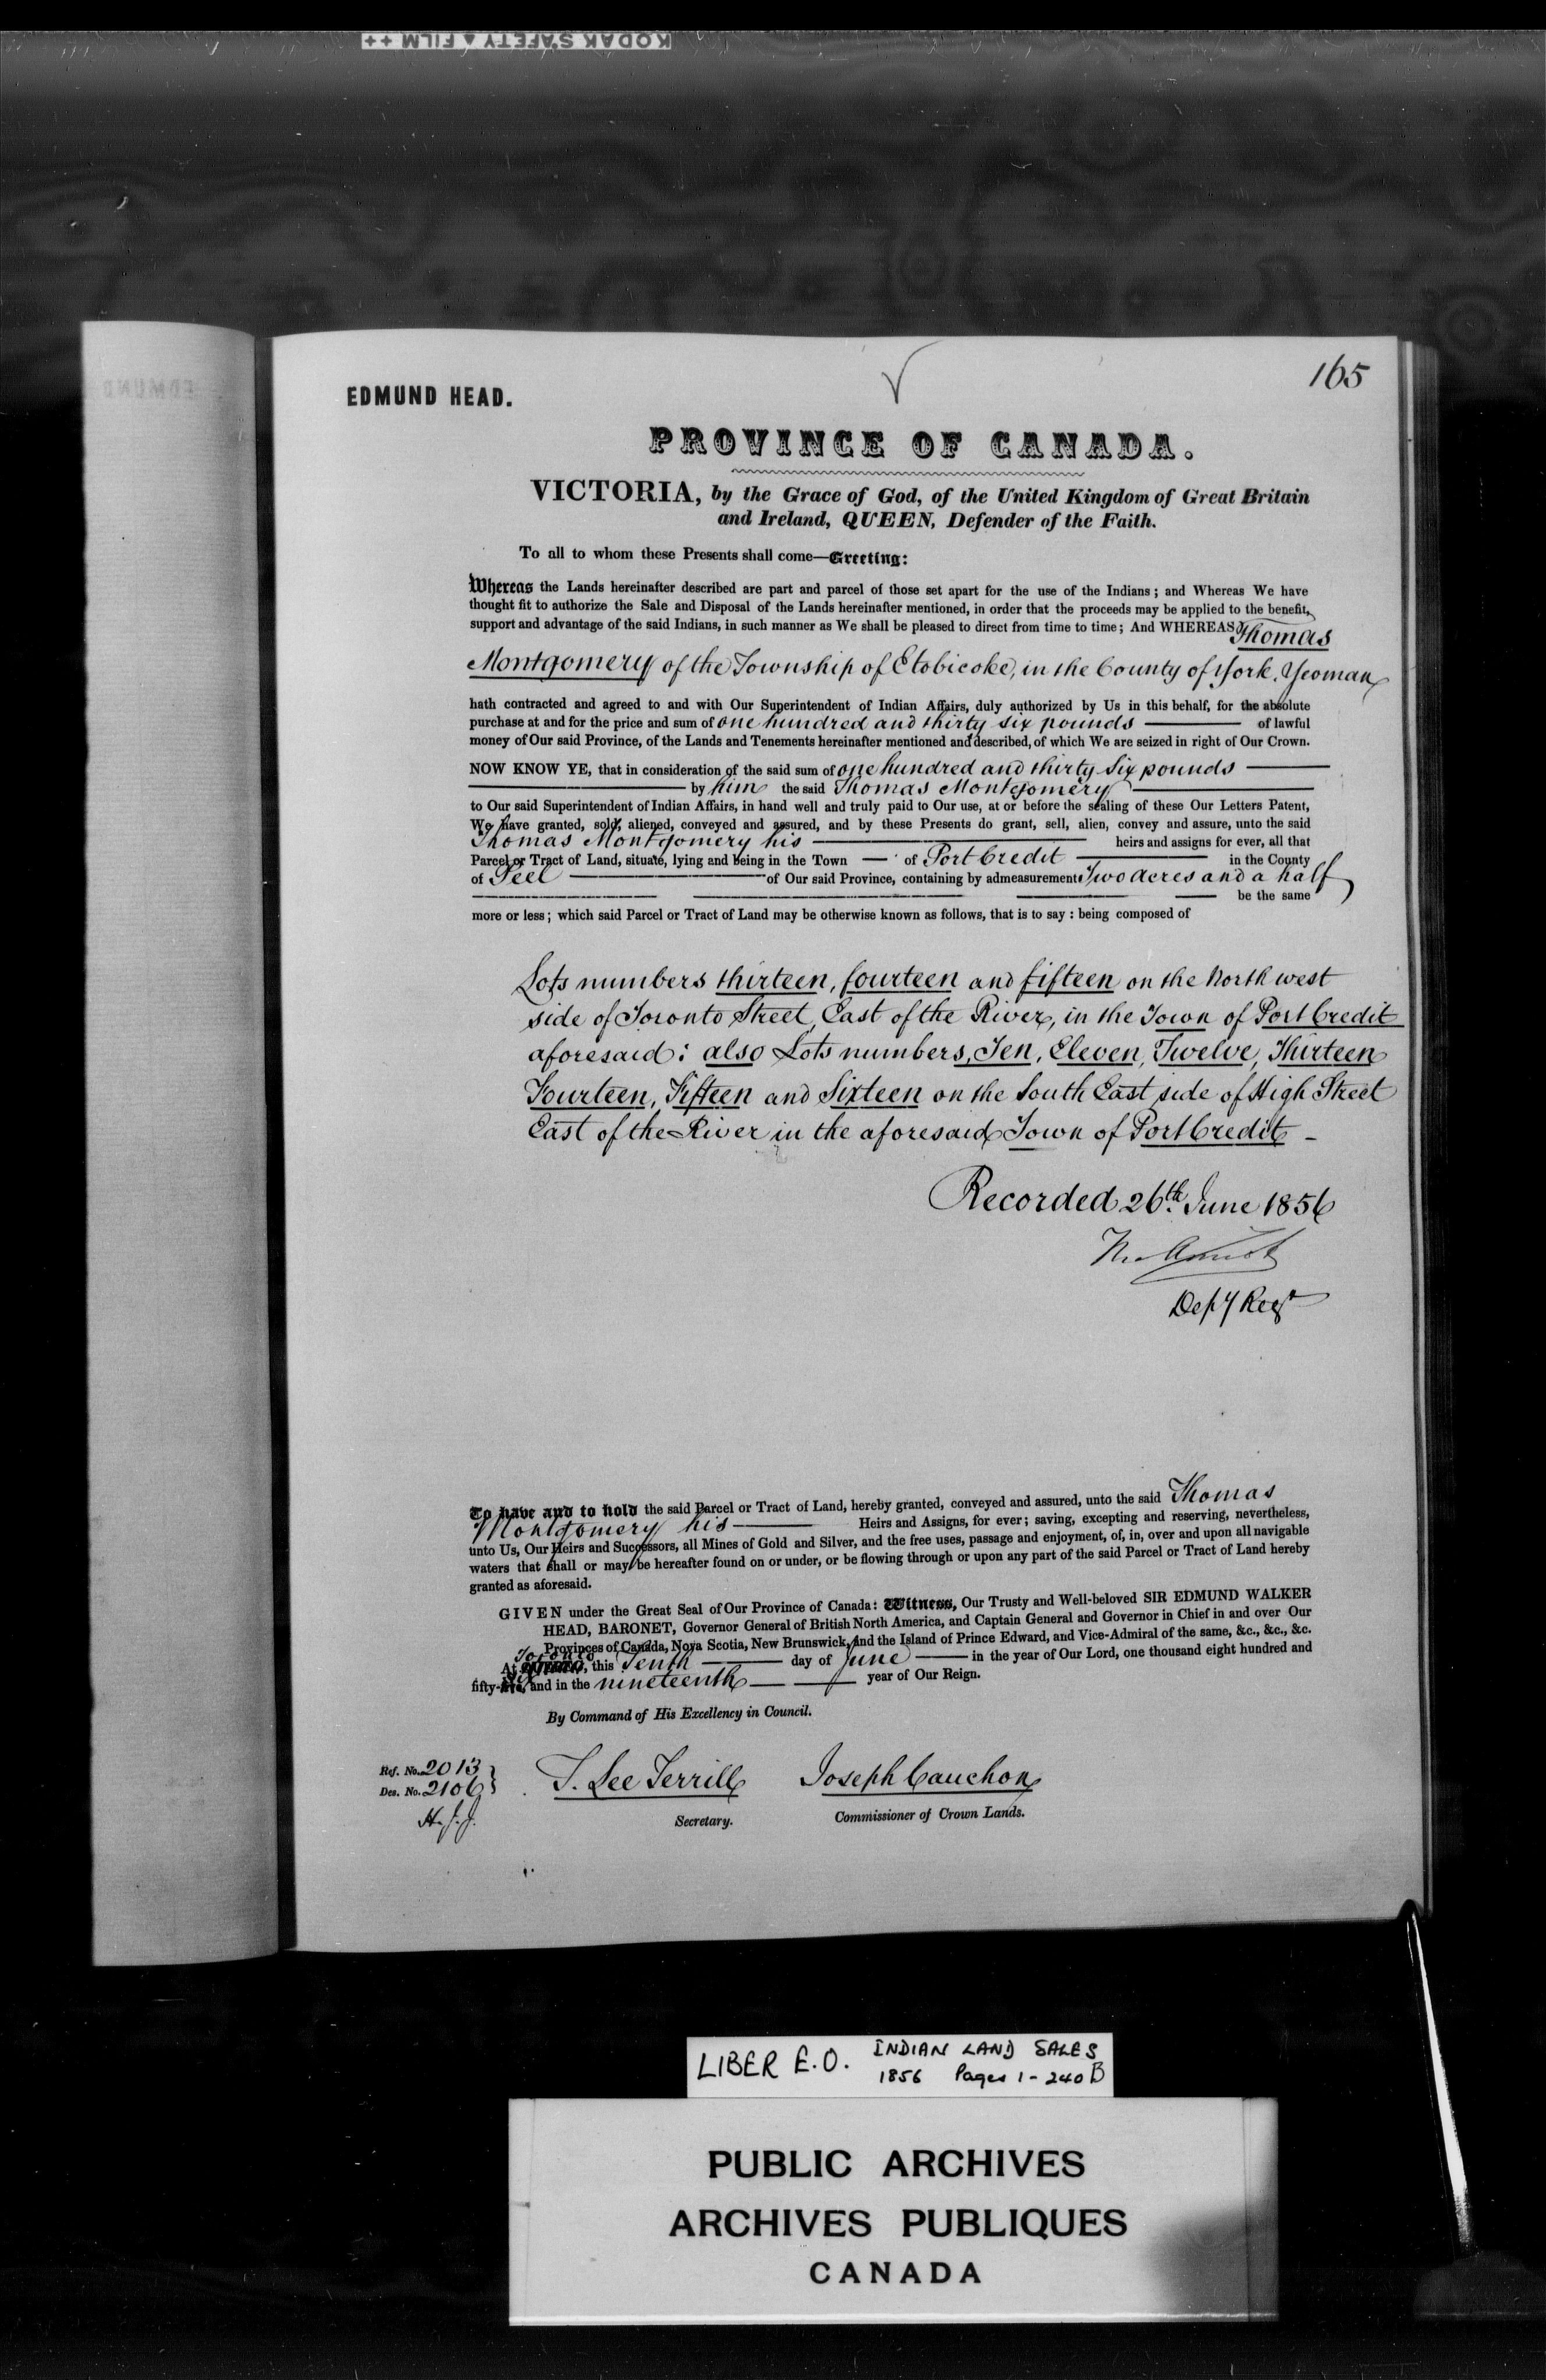 KODAK SAFETY ▲ FILM ++
165
EDMUND HEAD.
PROVINCE OF CANADA.
VICTORIA, by the Grace of God, of the United Kingdom of Great Britain
and Ireland, QUEEN, Defender of the Faith.
To all to whom these Presents shall come—Greeting:
Whereas the Lands hereinafter described are part and parcel of those set apart for the use of the Indians; and Whereas We have
thought fit to authorize the Sale and Disposal of the Lands hereinafter mentioned, in order that the proceeds may be applied to the benefit,
support and advantage of the said Indians, in such manner as We shall be pleased to direct from time to time; And WHEREAS Thomas
Montgomery of the Township of Etobicoke, in the County of York, Yeoman
hath contracted and agreed to and with Our Superintendent of Indian Affairs, duly authorized by Us in this behalf, for the absolute
purchase at and for the price and sum of one hundred and thirty six pounds of lawful
money of Our said Province, of the Lands and Tenements hereinafter mentioned and described, of which We are seized in right of Our Crown.
NOW KNOW YE, that in consideration of the said sum of one hundred and thirty six pounds
by him the said Thomas Montgomery
to Our said Superintendent of Indian Affairs, in hand well and truly paid to Our use, at or before the sealing of these Our Letters Patent,
We have granted, sold, aliened, conveyed and assured, and by these Presents do grant, sell, alien, convey and assure, unto the said
Thomas Montgomery his heirs and assigns for ever, all that
Parcel or Tract of Land, situate, lying and being in the Town — of Port Credit in the County
of Peel of Our said Province, containing by admeasurement Two acres and a half
be the same
more or less; which said Parcel or Tract of Land may be otherwise known as follows, that is to say: being composed of
Lots numbers thirteen, fourteen and fifteen on the North west
side of Toronto Street, East of the River, in the Town of Port Credit
aforesaid: also Lots numbers, Ten, Eleven, Twelve, Thirteen
Fourteen, Fifteen and Sixteen on the South East side of High Street
East of the River in the aforesaid Town of Port Credit –
Recorded 26th June 1856
Depy Regr
To have and to hold the said Parcel or Tract of Land, hereby granted, conveyed and assured, unto the said Thomas
Montgomery his Heirs and Assigns, for ever; saving, excepting and reserving, nevertheless,
unto Us, Our Heirs and Successors, all Mines of Gold and Silver, and the free uses, passage and enjoyment, of, in, over and upon all navigable
waters that shall or may be hereafter found on or under, or be flowing through or upon any part of the said Parcel or Tract of Land hereby
granted as aforesaid.
GIVEN under the Great Seal of Our Province of Canada: Witness, Our Trusty and Well-beloved SIR EDMUND WALKER
HEAD, BARONET, Governor General of British North America, and Captain General and Governor in Chief in and over Our
Provinces of Canada, Nova Scotia, New Brunswick, and the Island of Prince Edward, and Vice-Admiral of the same, &c., &c., &c.
At Toronto, this Tenth day of June in the year of Our Lord, one thousand eight hundred and
fifty-six, and in the nineteenth year of Our Reign.
By Command of His Excellency in Council.
Ref. No. 2013
Des. No. 2106
H.J.J.
T. Lee Terrill
Secretary.
Joseph Cauchon
Commissioner of Crown Lands.
LIBER E.O. INDIAN LAND SALES
1856 Pages 1 - 240B
PUBLIC ARCHIVES
ARCHIVES PUBLIQUES
CANADA